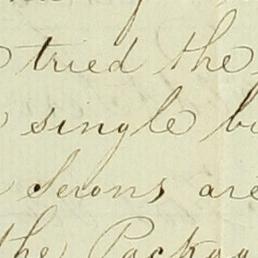 tried the
single
Serons are
the Packag